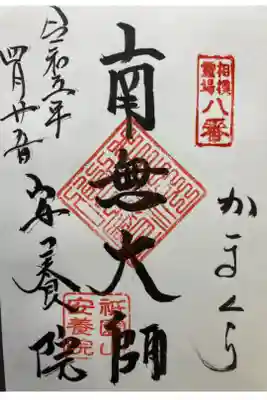 相模
霊場
八番
かまくら
南無大師
祇園山
安養院
安養院
令和五年
四月廿五日